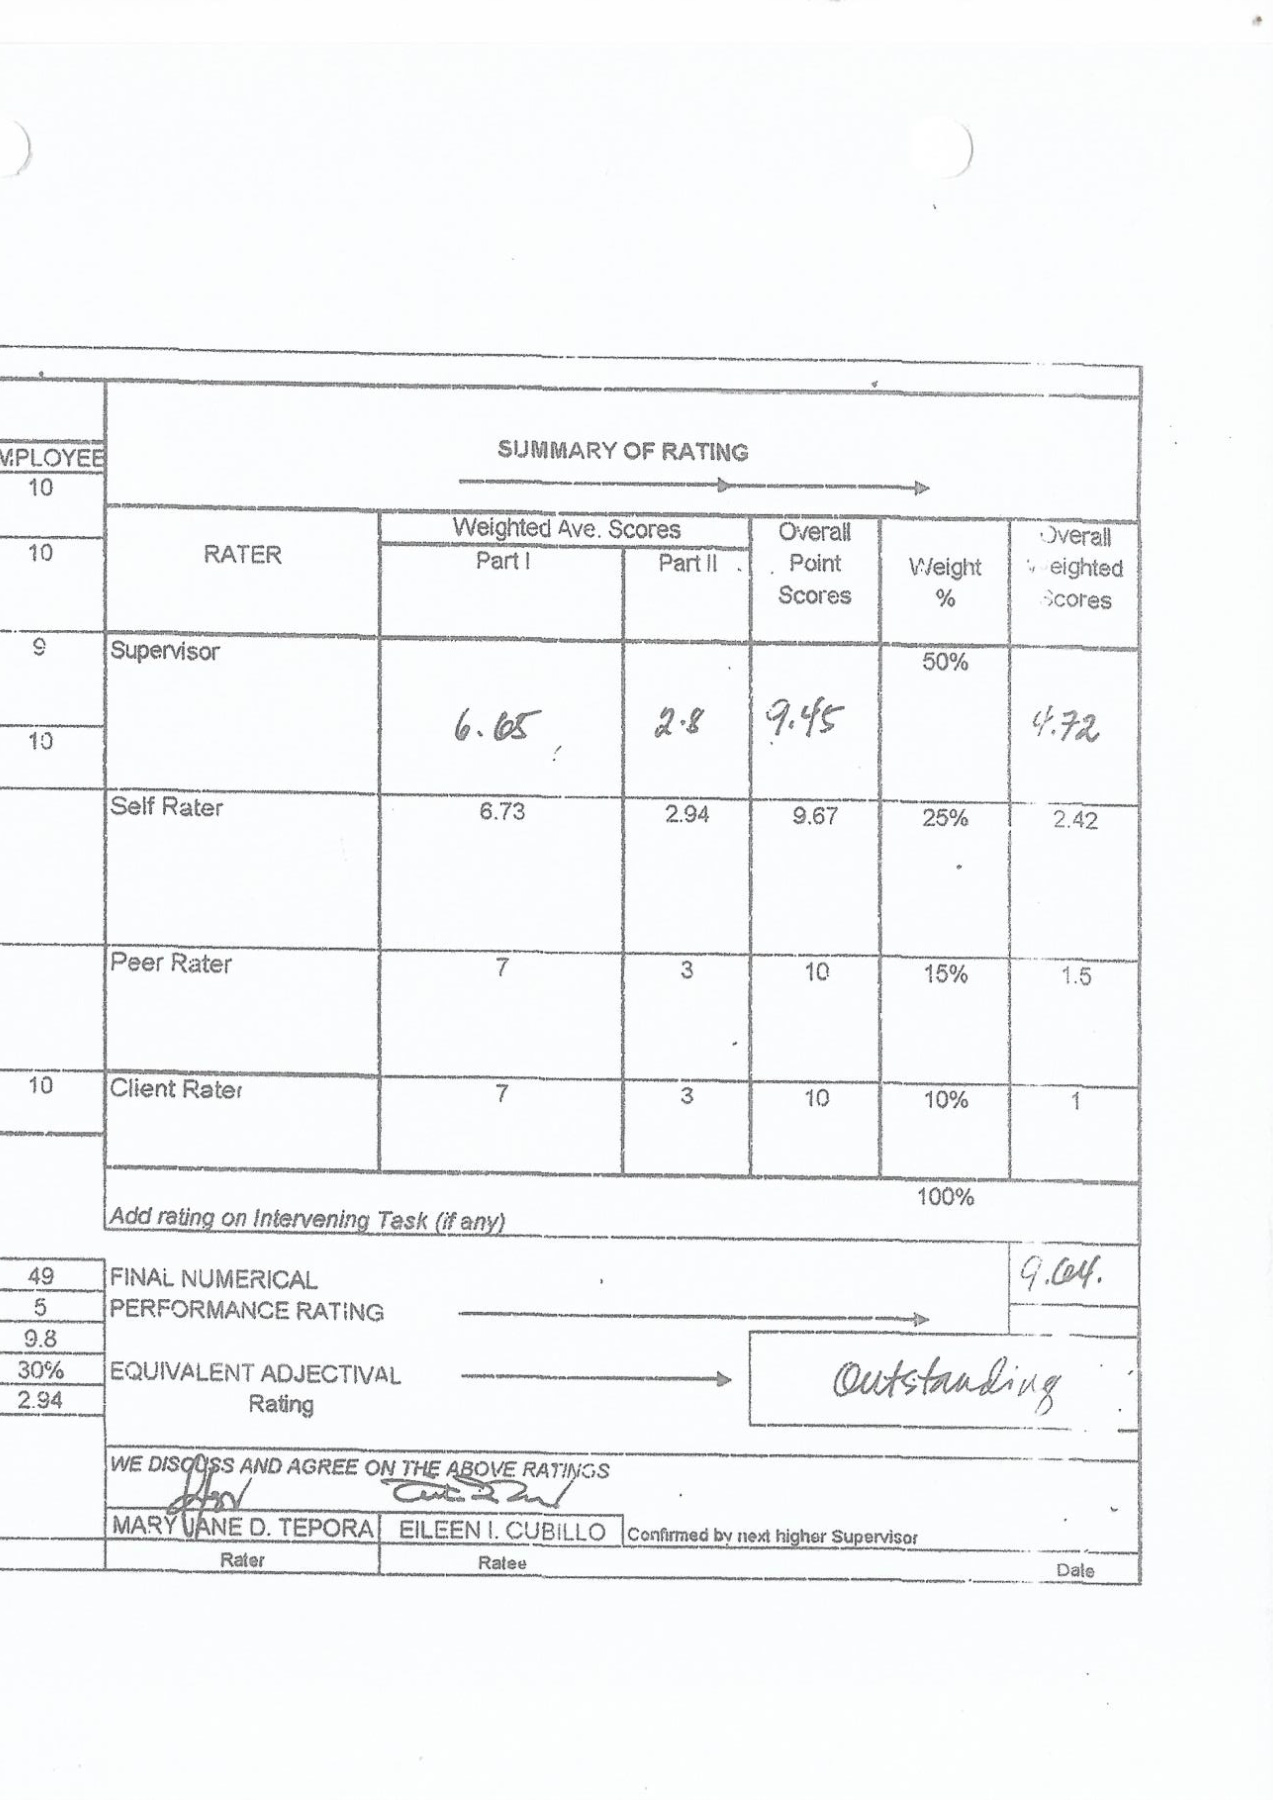 SUMMARY OF RATING
MPLOYEE
10
10
9
10
10
49
5
9.8
30%
2.94
RATER
Weighted Ave. Scores
Part I
Part II
Overall
Point
Scores
Weight
%
Overall
Weighted
Scores
Supervisor
50%
6.65
2.8
9.45
4.72
Self Rater
6.73
2.94
9.67
25%
2.42
Peer Rater
7
3
10
15%
1.5
Client Rater
7
3
10
10%
1
100%
Add rating on Intervening Task (if any)
FINAL NUMERICAL
PERFORMANCE RATING
9.64.
EQUIVALENT ADJECTIVAL
Rating
Outstanding
WE DISCUSS AND AGREE ON THE ABOVE RATINGS
MARY JANE D. TEPORA
EILEEN I. CUBILLO
Confirmed by next higher Supervisor
Rater
Ratee
Date